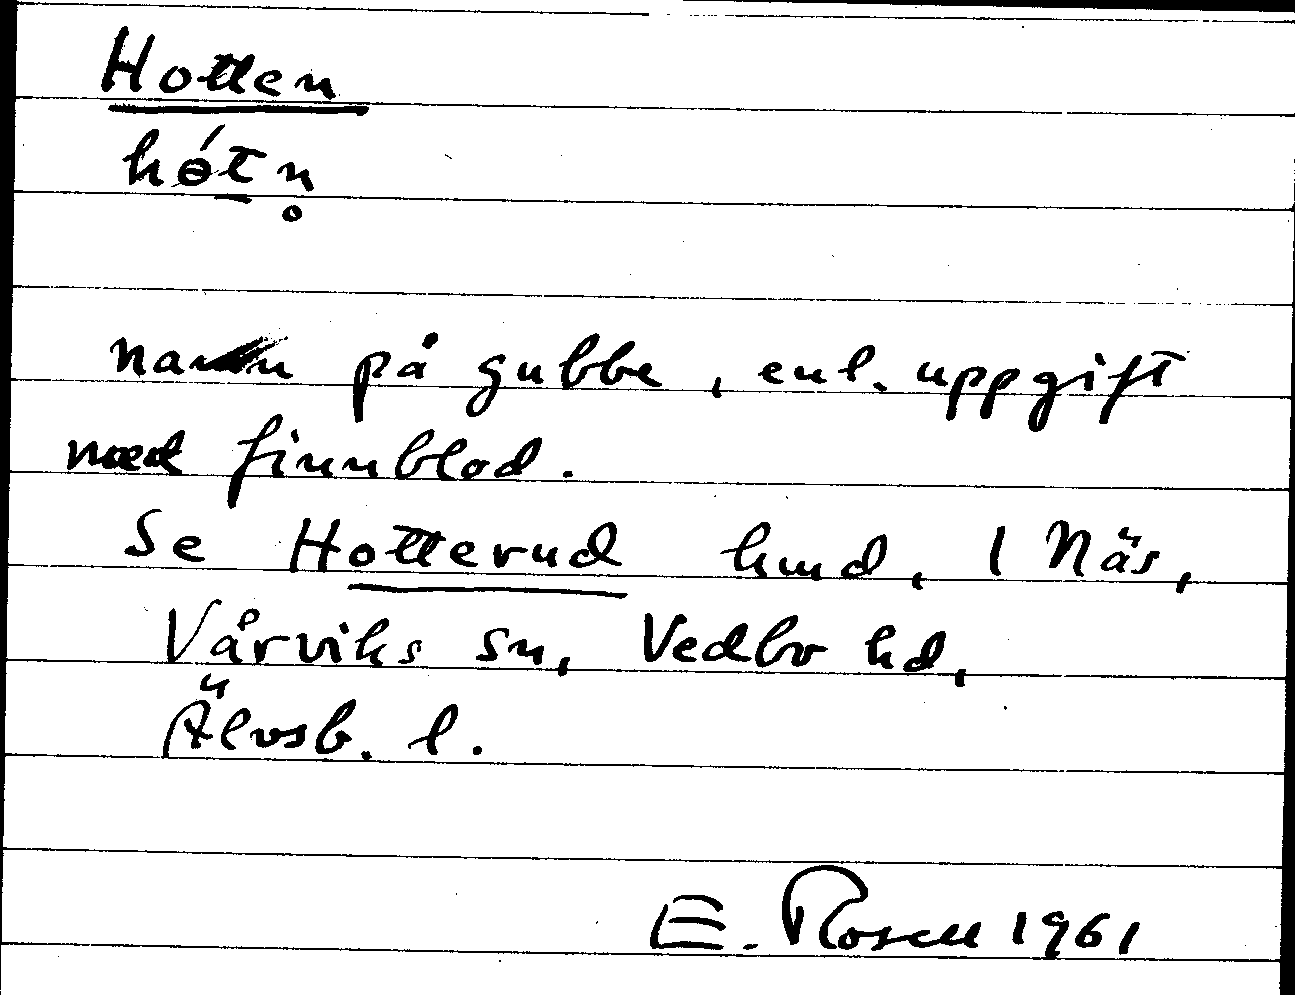 Hotten
hɵ́t̠n̥
namn på gubbe, enl. uppgift
med finnblod.
Se Hotterud hmd, 1 Näs,
Vårviks sn, Vedbo hd,
Älvsb. l.
E. Rosell 1961